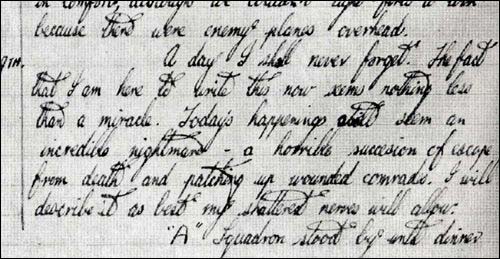 in comfort, always we couldn't light fires a
because there were enemy planes overhead.
9TH. A day I shall never forget. The fact
that I am here to write this now seems nothing less
than a miracle. Today's happenings still seem an
incredible nightmare - a horrible succesion of escape
from death and patching up wounded comrads. I will
describe it as best my shattered nerves will allow.
"A" Squadron stood by until dinner